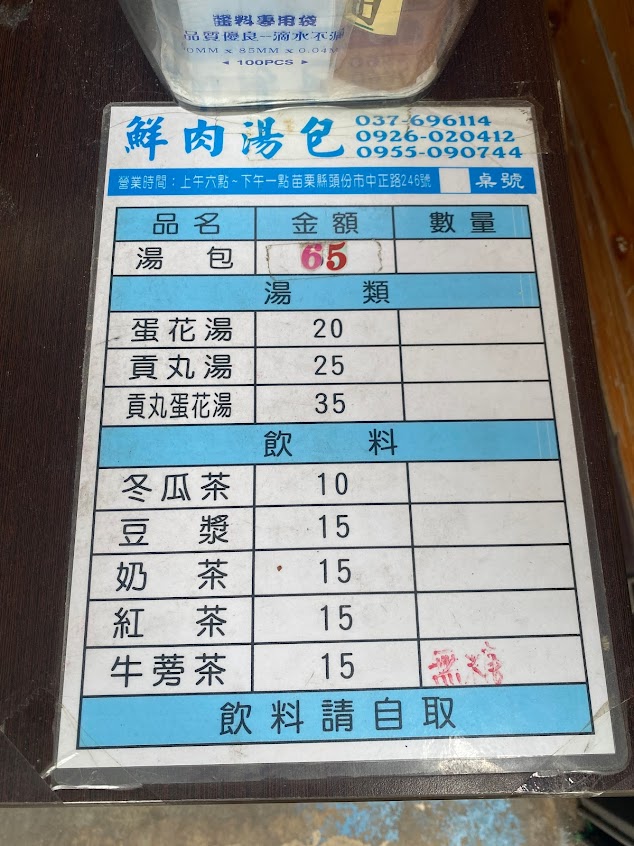 醬料專用袋
品質優良一滴水不漏
MM x 85MM x 0.04M
◄ 100PCS ►
鮮肉湯包
037-696114
0926-020412
0955-090744
營業時間：上午六點~下午一點 苗栗縣頭份市中正路246號 桌號
品名 金額 數量
湯包 65
湯類
蛋花湯 20
貢丸湯 25
貢丸蛋花湯 35
飲料
冬瓜茶 10
豆漿 15
奶茶 15
紅茶 15
牛蒡茶 15 無糖
飲料請自取